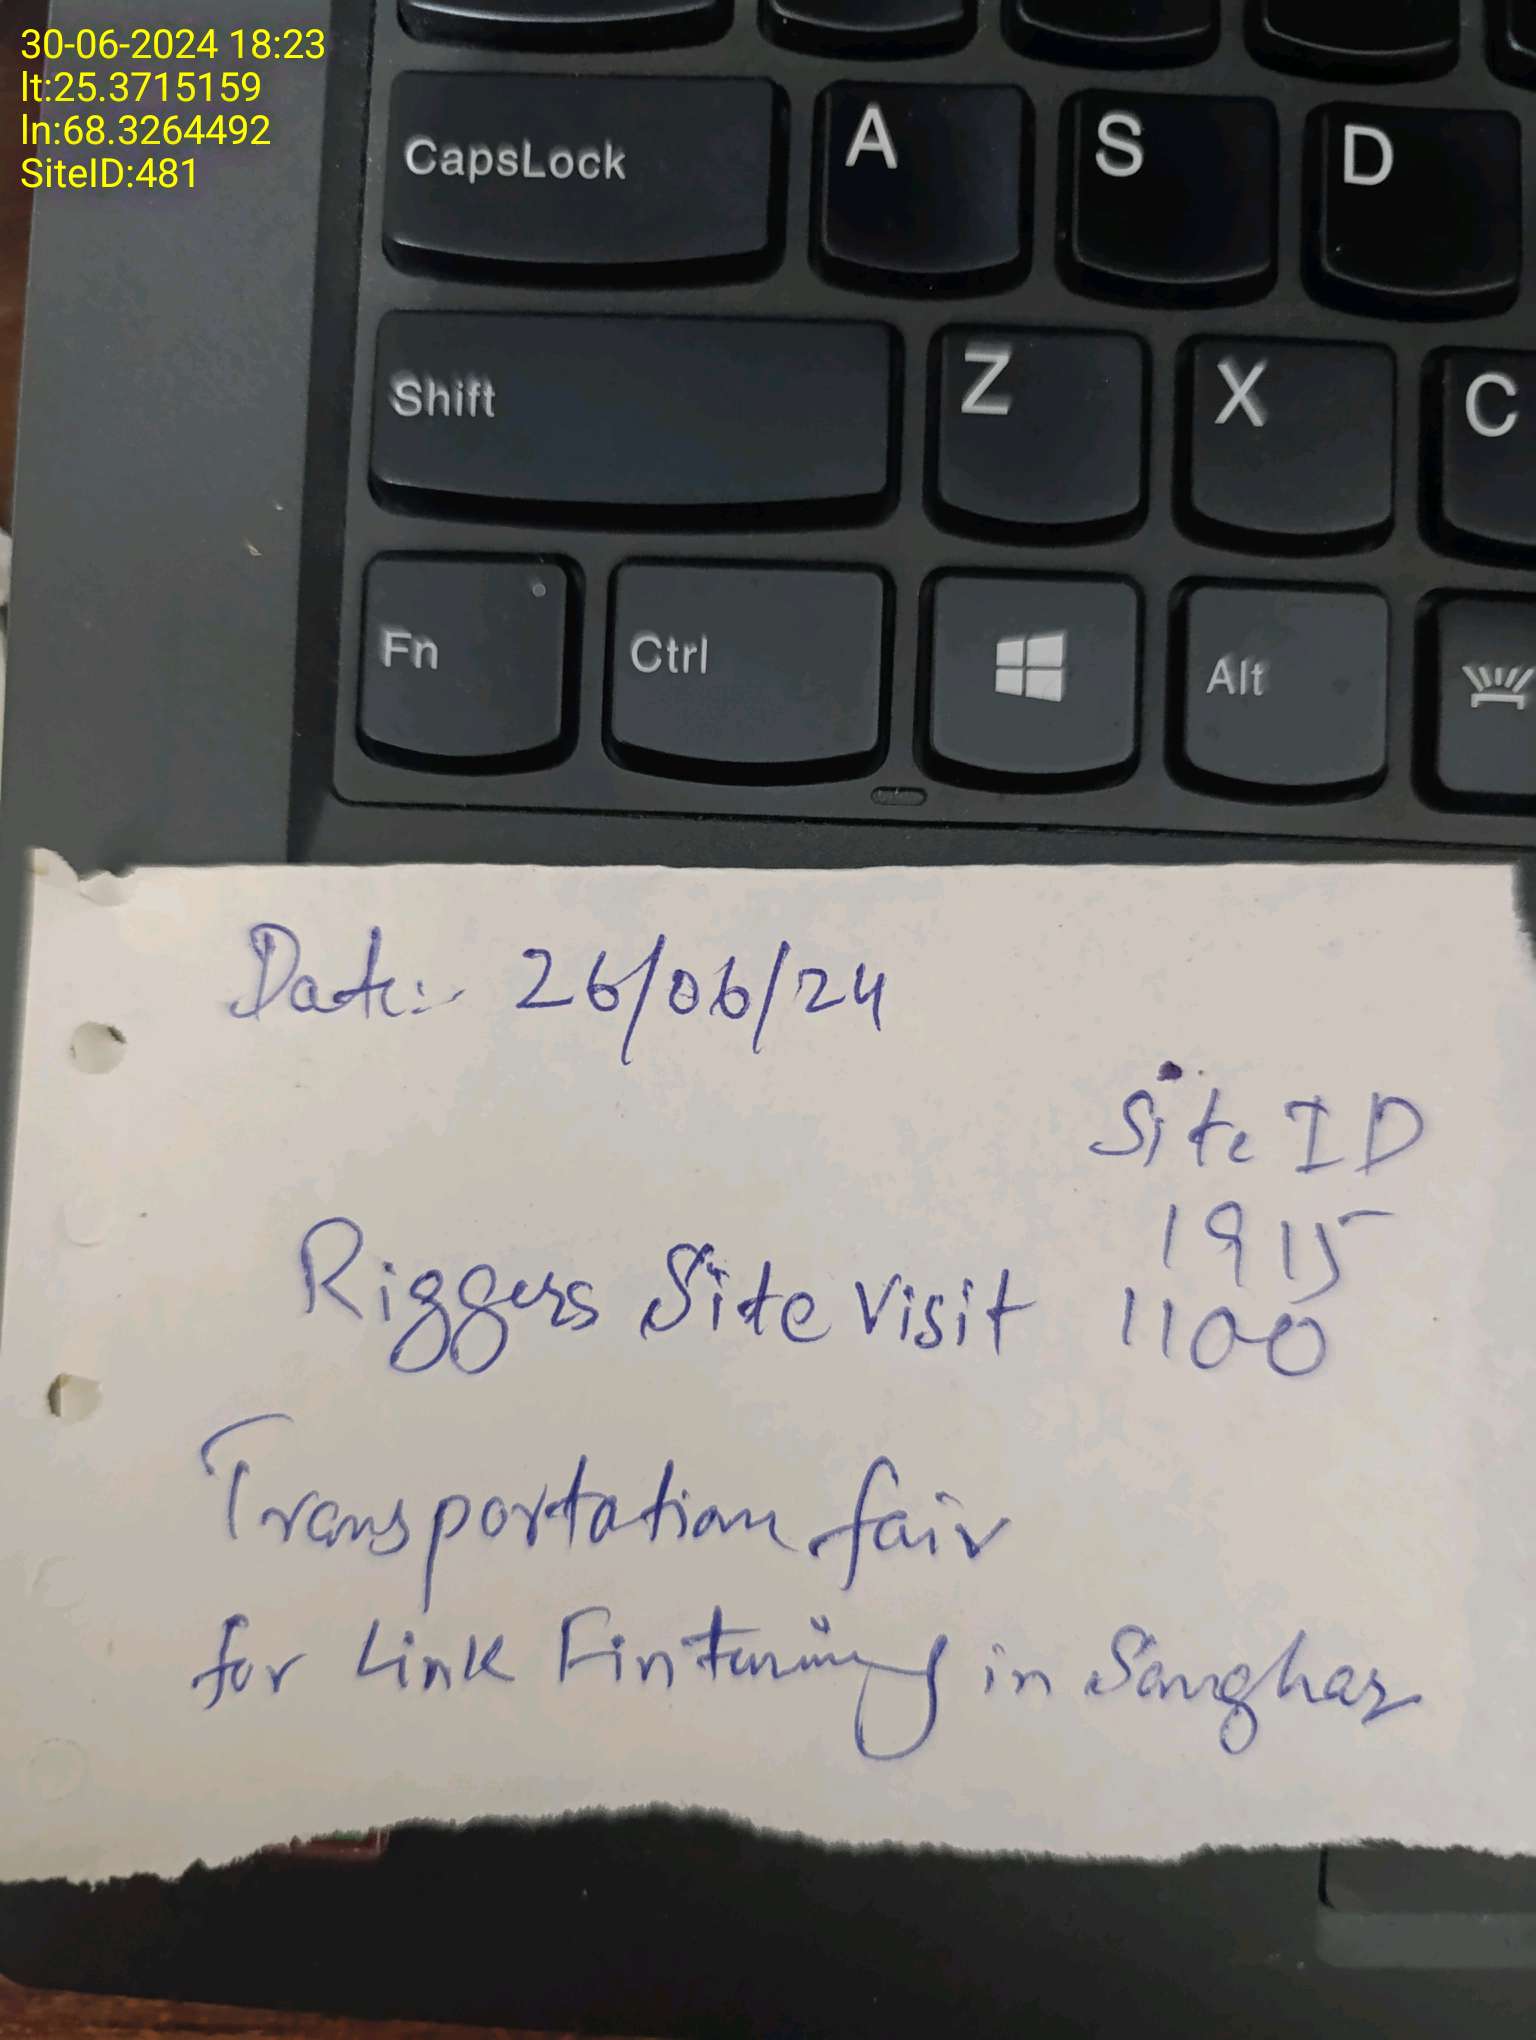 30-06-2024 18:23
lt:25.3715159
ln:68.3264492
SiteID:481
CapsLock A S D
Shift Z X C
Fn Ctrl Alt
Date:- 26/06/24
Site ID
1915
Riggers Site Visit 1100
Transportation fair
for Link Fintuning in Sanghar